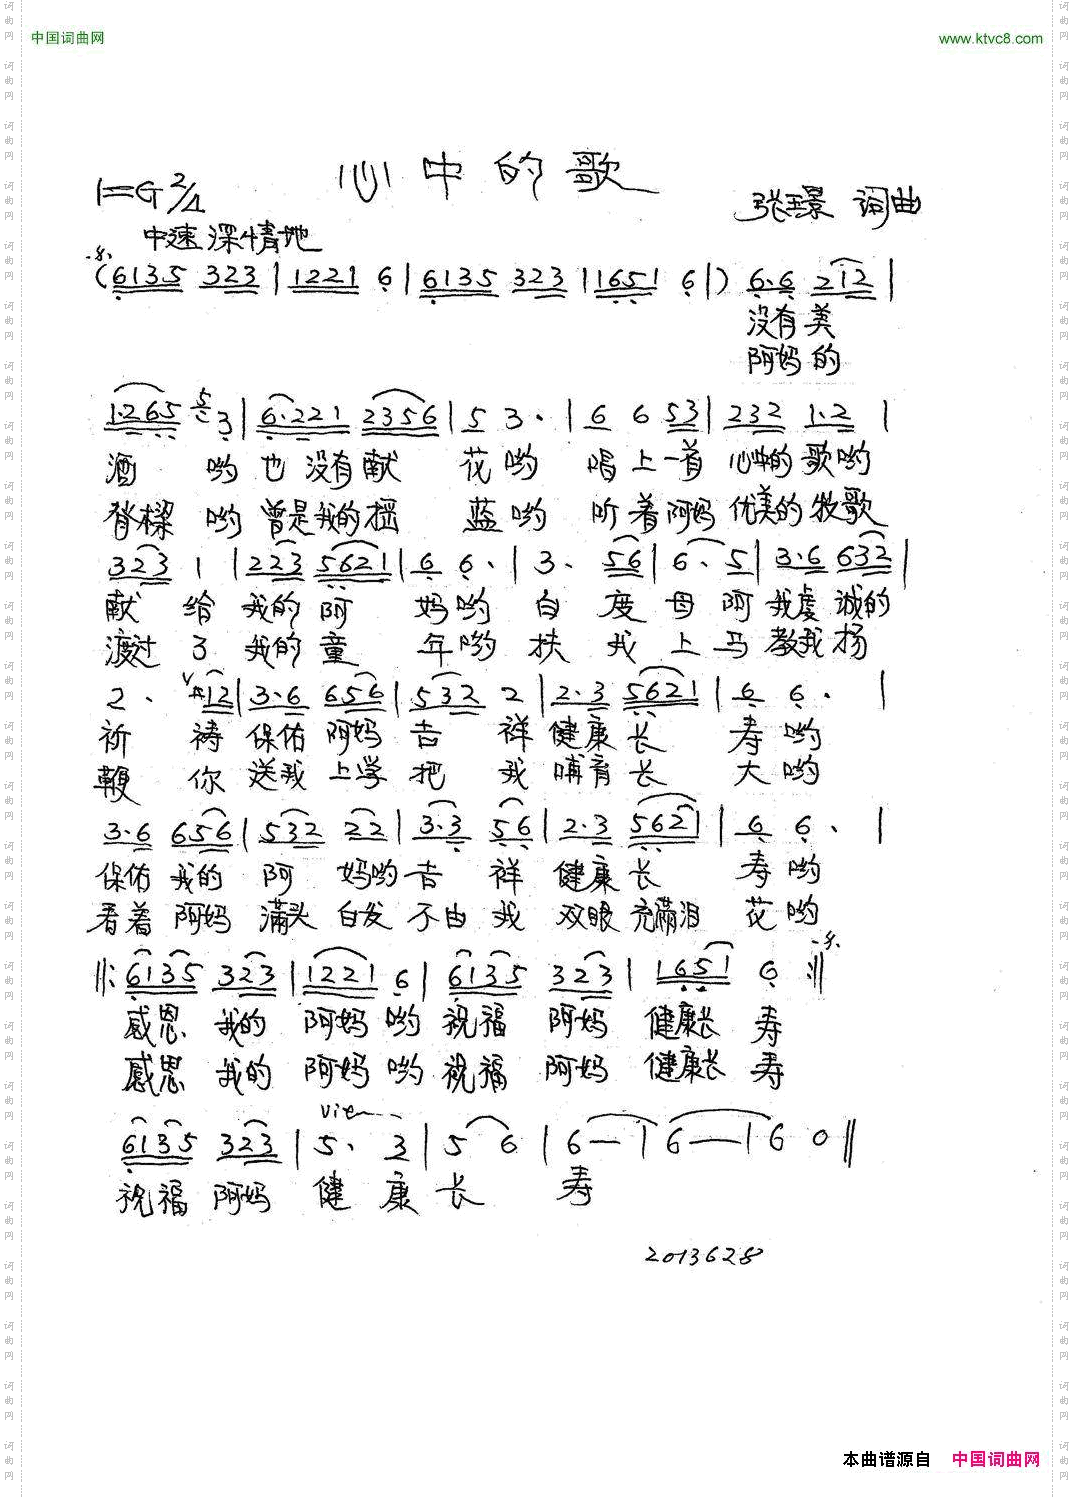 中国词曲网 www.ktvc8.com
心中的歌
1=G 2/4
张璟 词曲
中速 深情地
(6135 323|1221 6|6135 323|1651 6|) 6.6 212|
没有美
阿妈的
1.265 5 3|6.221 2356|5 3.|6 6 53|232 1.2|
酒 哟 也 没有献 花哟 唱上一首 心中的 歌哟
脊樑 哟 曾是我的摇 蓝哟 听着阿妈 优美的 牧歌
323 1|223 5621|6 6.|3. 56|6. 5|3.6 632|
献 给 我的 阿 妈哟 白 度 母 阿 我虔 诚的
渡过 了 我的 童 年哟 扶 我 上 马 教我 扬
2. V 12|3.6 656|532 2|2.3 5621|6 6.|
祈 祷 保佑 阿妈 吉 祥 健康 长 寿哟
鞭 你 送我 上学 把 我 哺育 长 大哟
3.6 656|532 22|3.3 56|2.3 5621|6 6.|
保佑 我的 阿 妈哟 吉 祥 健康 长 寿哟
看着 阿妈 满头 白发 不由 我 双眼 充满泪 花哟
‖:6135 323|1221 6|6135 323|1651 6:‖
感恩 我的 阿妈 哟 祝福 阿妈 健康长 寿
感恩 我的 阿妈 哟 祝福 阿妈 健康长 寿
6135 323|5. 3|5 6|6—|6—|6 0‖
祝福 阿妈 健 康 长 寿
2013628
本曲谱源自 中国词曲网